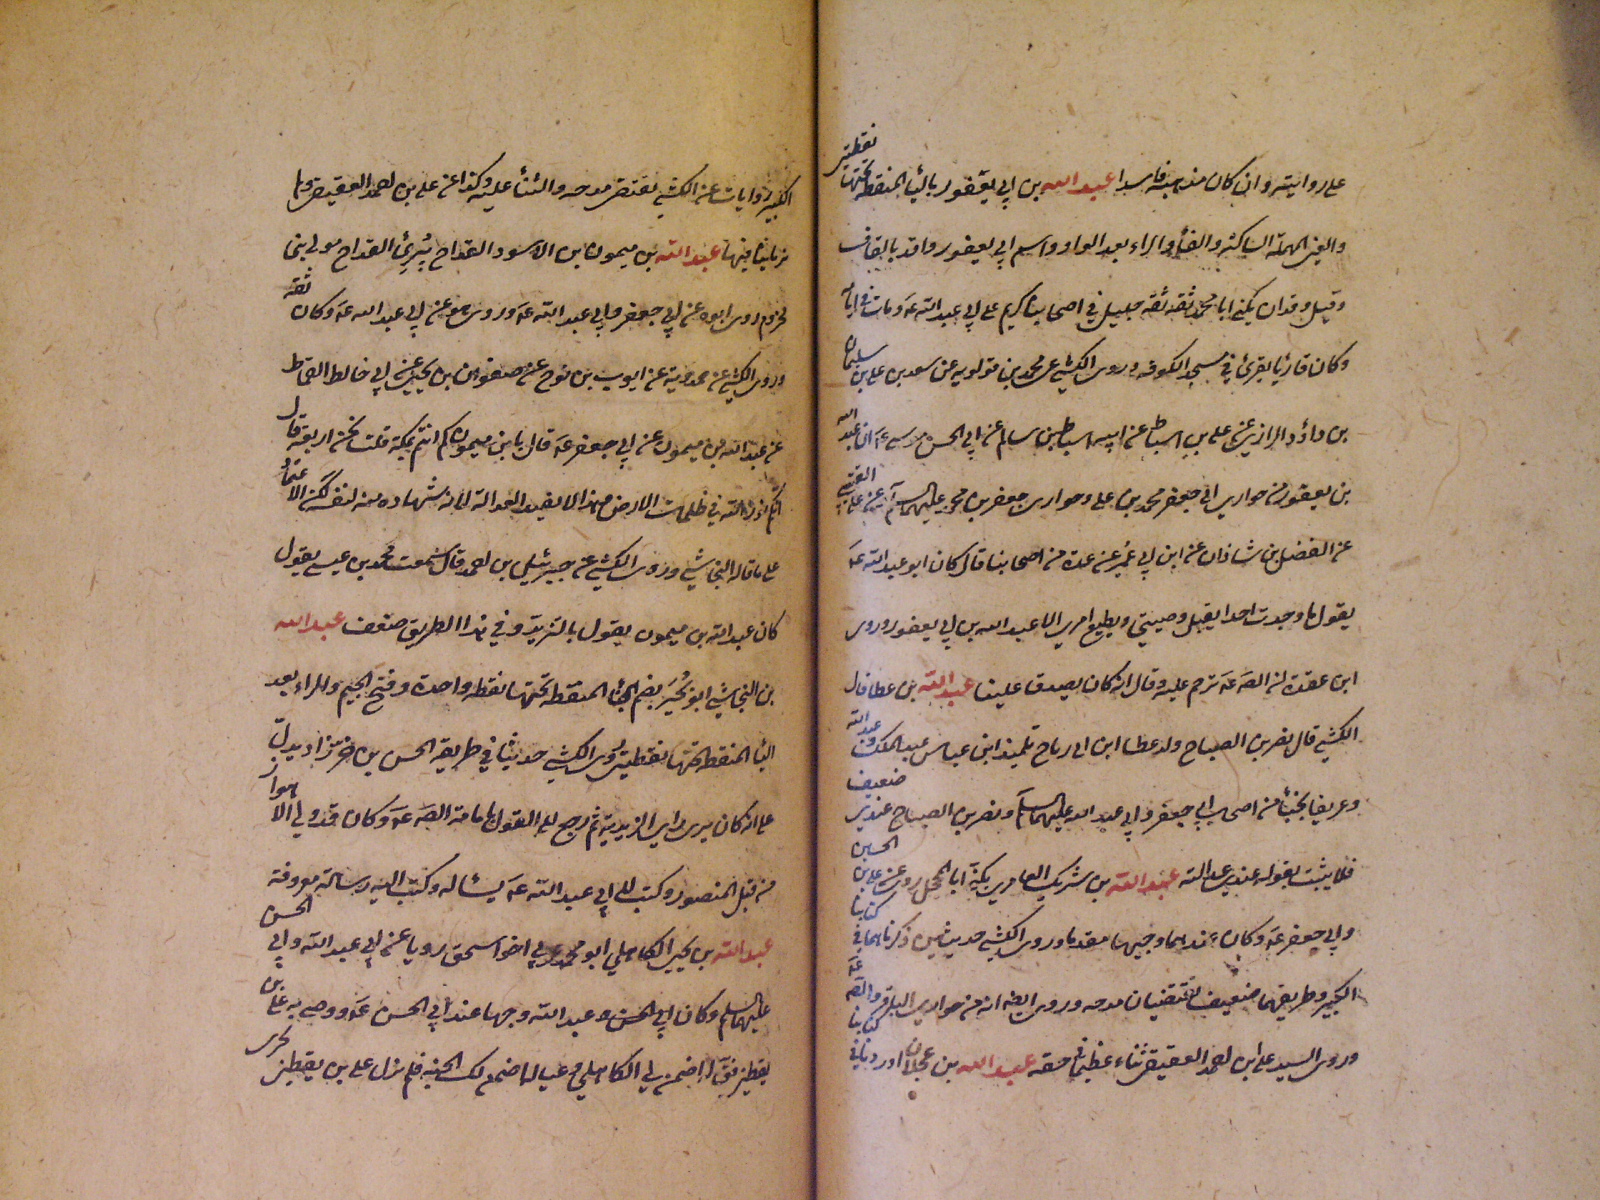 على روايته وان كان مذهبه فاسدا عبد الله بن ابي يعفور باليا المنقطة تحتها نقطتين
والعين المهملة الساكنة والفاء والراء بعد الواو واسم ابي يعفور واقد بالقاف
وقيل وقدان يكنى ابا محمد ثقة ثقة جليل في اصحابنا كريم على ابي عبد الله عه ومات في ايامه
وكان قارئا يقرئ في مسجد الكوفة وروى الكشي عن محمد بن قولويه عن سعد بن علي بن سليمان
بن داؤد الرازي عن علي بن اسباط عن ابيه اسباط بن سالم عن ابي الحسن موسى عه ان عبد الله
بن يعفور من حواري ابي جعفر محمد بن علي وحواري جعفر بن محمد عليهم السلم عن علي القتيبي
عن الفضل بن شاذان عن ابن ابي عمير عن عدة من اصحابنا قال كان ابو عبد الله عه
يقول ما وجدت احدا يقبل وصيتي ويطيع امري الا عبد الله بن ابي يعفور وروى
ابن عقدة ان الصه عه ترحم عليه وقال انه كان يصدق علينا عبد الله بن عطا قال
الكشي قال نصر بن الصباح ولد عطا ابن ابي رباح تلميذ ابن عباس عبد الملك وعبد الله
وعريفا نجباء من اصحاب ابي جعفر وابي عبد الله عليهما السلم ونصر بن الصباح عندي ضعيف
فلا يثبت بقوله عندي عدالته عبد الله بن شريك العامري يكنى ابا المحجل روى عن علي بن الحسين
وابي جعفر عه وكان عندهما وجيها مقدما وروى الكشي حديثين ذكرناهما في كتابنا
الكبير وطريقهما ضعيف يقتضيان مدحه وروى ايضا انه من حواري الباقر والصه عه
وروى السيد علي ابن احمد العقيقي ثناء عظيما في حقه عبد الله بن عجلان اوردنا في كتابنا
الكبير روايات عن الكشي يقتضي مدحه والثناء عليه وكذا عن علي بن احمد العقيقي وما
عبد الله بن ميمون بن الاسود القداح يبرئ القداح مولى بني
مخزوم روى ابوه عن ابي جعفر وابي عبد الله عه وروى هو عن ابي عبد الله عه وكان ثقة
وروى الكشي عن حمدويه عن ايوب بن نوح عن صفوان بن يحيى عن ابي خالد القماط
عن عبد الله بن ميمون عن ابي جعفر عه قال يا بن ميمون كم انتم بمكة قلت نحن اربعة قال
انكم نور الله في ظلمات الارض وهذا لا يفيد العدالة لانه شهادة منه لنفسه لكن الاعتماد
على ما قاله النجاشي وروى الكشي عن جبرئيل بن احمد قال سمعت محمد بن عيسى يقول
كان عبد الله بن ميمون يقول بالتزيد وفي هذا الطريق ضعف عبد الله
بن النجاشي ابو بجير بضم الباء المنقطة تحتها نقطة واحدة وفتح الجيم والراء بعد
اليا المنقطة تحتها نقطتين روى الكشي حديثا في طريقه الحسن بن خرزاد يدل
على انه كان يرى راي الزيدية ثم رجع الى القول بامامة الصه عه وكان قد ولي الاهواز
من قبل المنصور وكتب الى ابي عبد الله عه يسأله وكتب اليه رسالة معروفة
عبد الله بن يحيى الكاهلي ابو محمد عربي اخو اسحق رويا عن ابي عبد الله وابي الحسن
عليهما السلم وكان ابي الحسن وعبد الله وجها عند ابي الحسن عه ووصى به علي بن
يقطين فقال اضمن لي الكاهلي وعياله اضمن لك الجنة فلم يزل علي بن يقطين يجري